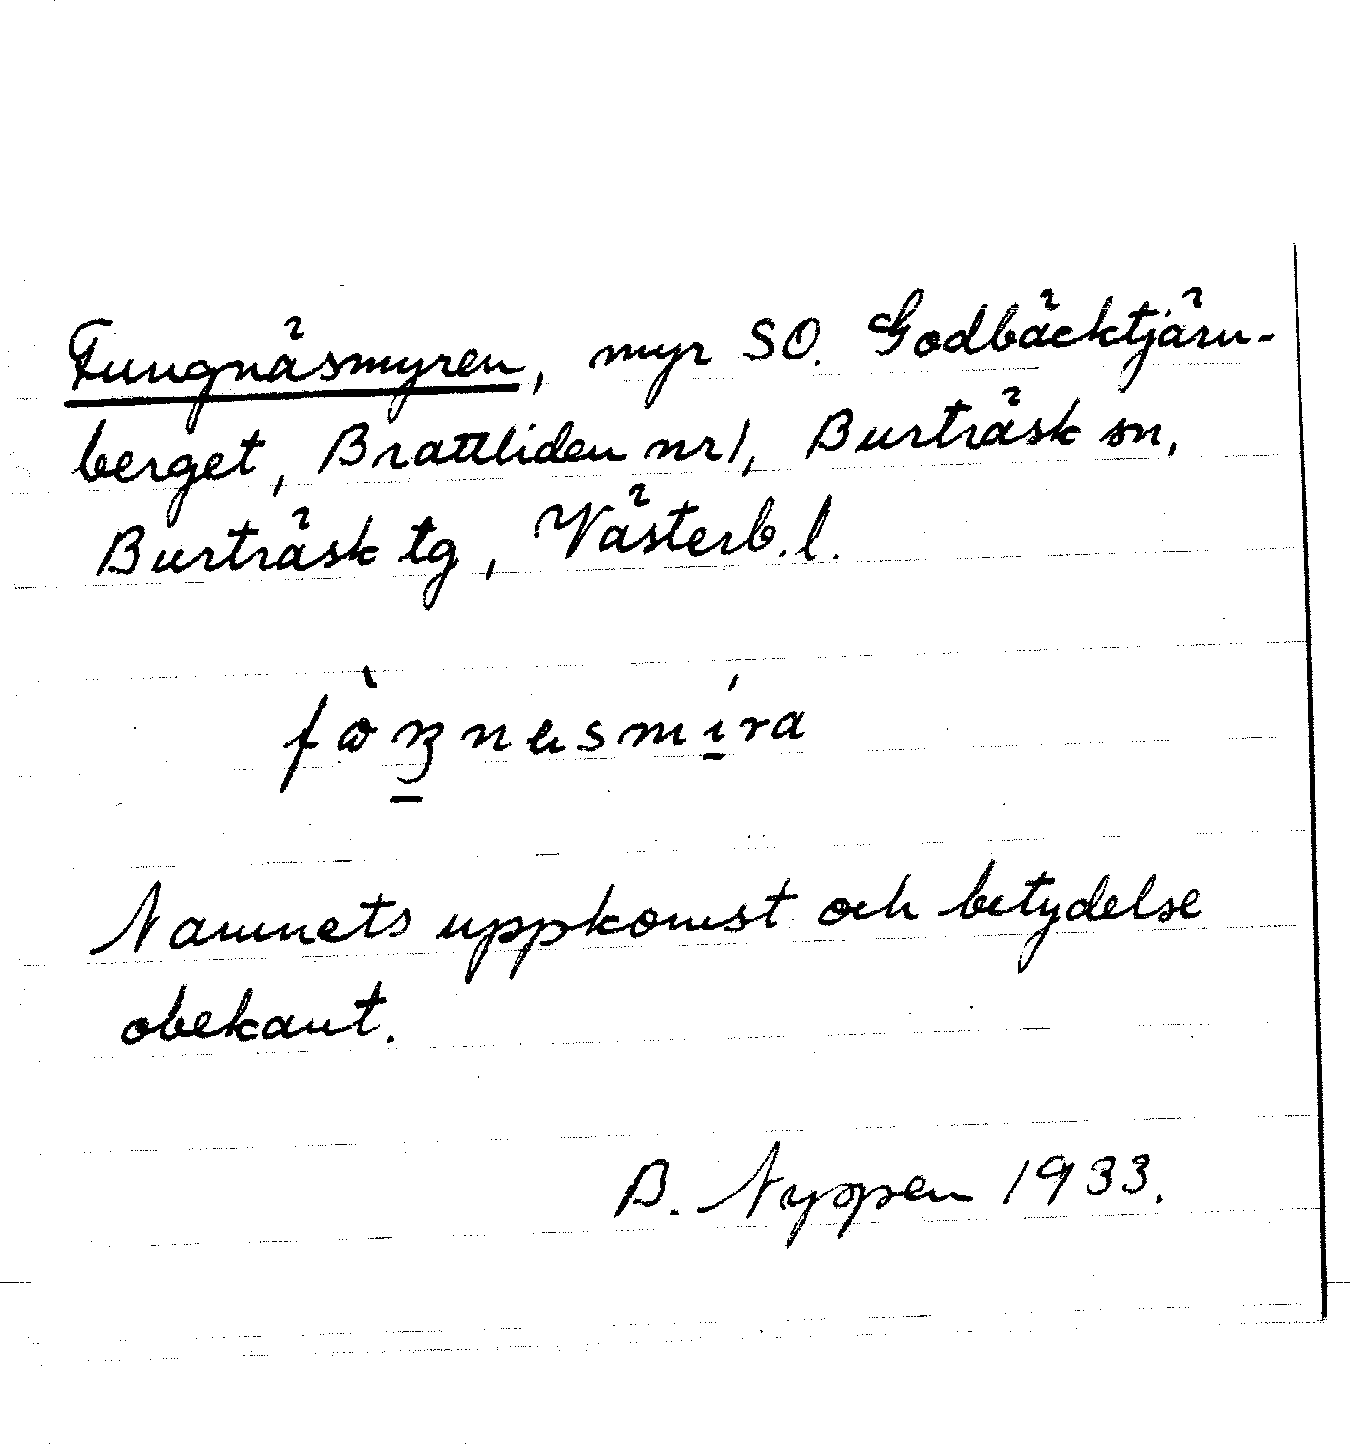 Fungnäsmyren, myr SO. Godbäcktjärn-
berget, Brattliden nr 1, Burträsk sn,
Burträsk tg, Västerb. l.
Namnets uppkomst och betydelse
obekant.
B. Nyppen 1933.